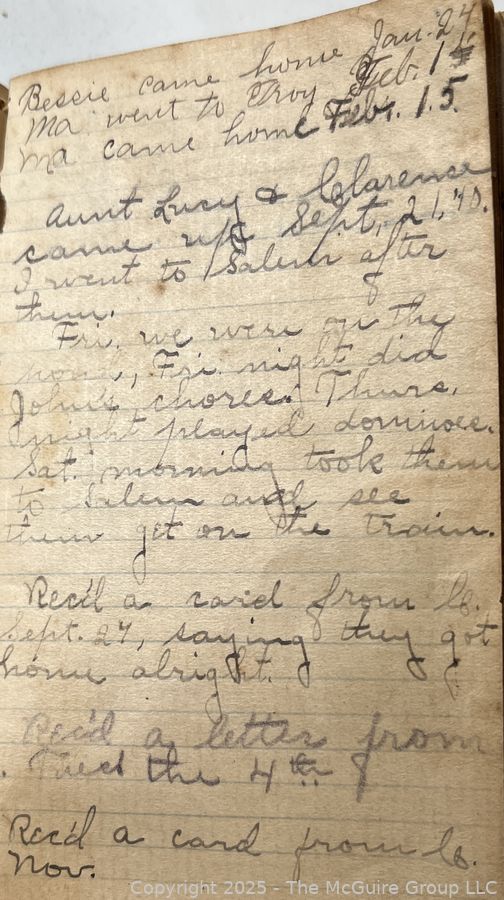 Bessie came home Jan. 24
Ma went to Troy Feb. 14
Ma came home Febr. 15.
Aunt Lucy & Clarence
came up Sept, 21, '10.
I went to Salem after
them.
Fri. we were on the
Fri. night did
John's chores. Thurs.
night played dominoes.
Sat. morning took them
to Salem and see
them get on the train.
Rec'd a card from C.
Sept. 27, saying they got
home alright.
Rec'd a letter from
the 4th
Rec'd a card from C.
Nov.
Copyright 2025 - The McGuire Group LLC